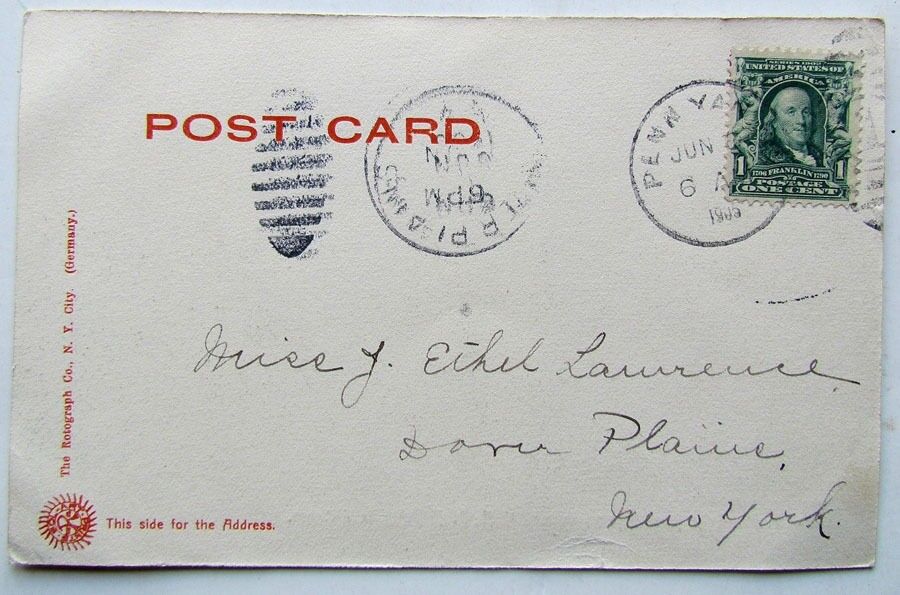 POST CARD
PENN YAN
JUN
6
1905
SERIES 1902
UNITED STATES OF
AMERICA
1
1
1706 FRANKLIN 1790
POSTAGE
ONE CENT
JUN
6 PM
Miss J. Ethel Lawrence,
Dover Plains,
New York.
The Rotograph Co., N. Y. City. (Germany.)
This side for the Address.